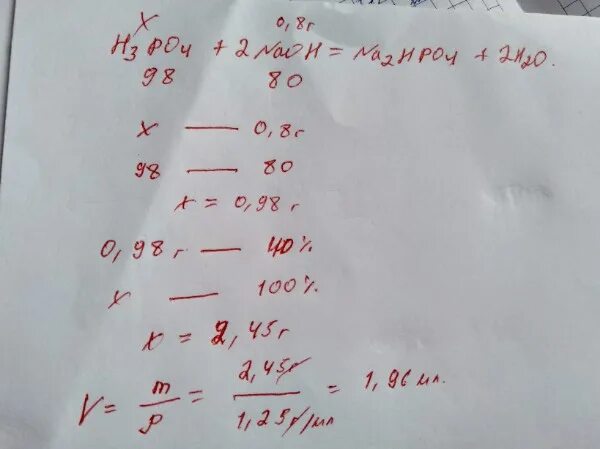 x 0,8г
H3PO4 + 2NaOH = Na2HPO4 + 2H2O.
98 80
x — 0,8г
98 — 80
x = 0,98 г
0,98 г — 40%
x — 100%
x = 2,45г
V = m/ρ = 2,45г/1,25г/мл = 1,96 мл.